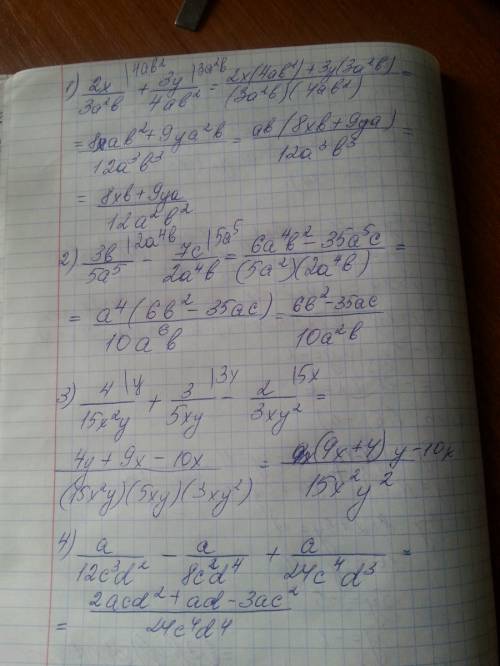 1) 2x/3a²b |4ab² + 3y/4ab² |3a²b = 2x(4ab²)+3y(3a²b)/(3a²b)(4ab²) =
= 8xab²+9ya²b/12a³b³ = ab(8xb+9ya)/12a³b³ =
= 8xb+9ya/12a²b²
2) 3b/5a⁵ |2a⁴b − 7c/2a⁴b |5a⁵ = 6a⁴b²−35a⁵c/(5a²)(2a⁴b) =
= a⁴(6b²−35ac)/10a⁶b = 6b²−35ac/10a²b
3) 4/15x²y |y + 3/5xy |3y − 2/3xy² |5x =
4y+9x−10x/(15x²y)(5xy)(3xy²) = (9x+4)y−10x/15x²y²
4) a/12c³d² − a/8c²d⁴ + a/24c⁴d³ =
= 2acd²+ad−3ac²/24c⁴d⁴